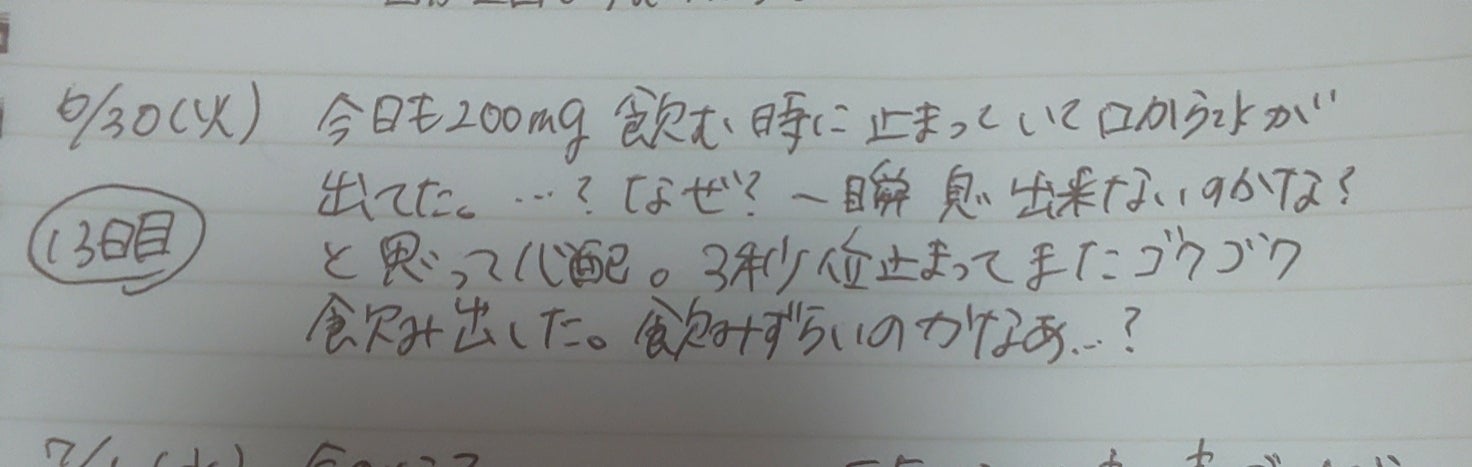 6/30(火) 今日も200mg 飲む時に止まっていて口からよが
13日目 出てた。…?なぜ?一瞬 息 出来ないのかな?
と思って心配。3秒位止まってまたゴクゴク
飲み出した。飲みずらいのかなあ…?